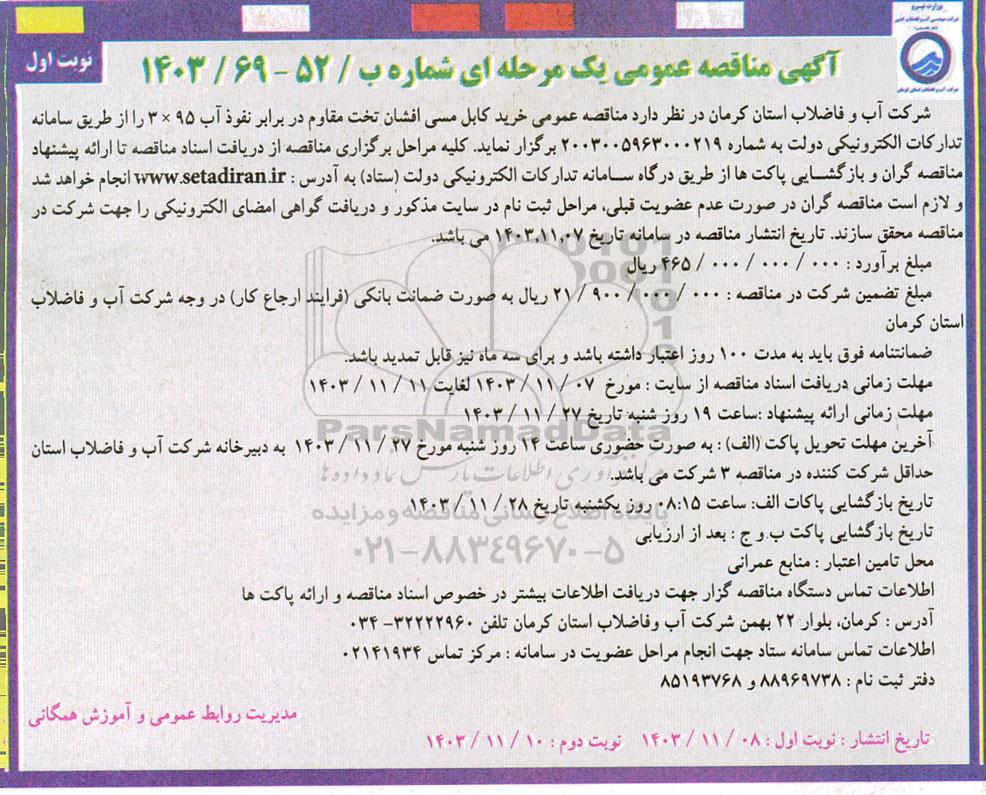 وزارت نیرو
نوبت اول
آگهی مناقصه عمومی یک مرحله ای شماره ب / ۵۲ - ۶۹ / ۱۴۰۳
شرکت آب و فاضلاب استان کرمان در نظر دارد مناقصه عمومی خرید کابل مسی افشان تخت مقاوم در برابر نفوذ آب ۹۵ × ۳ را از طریق سامانه
تدارکات الکترونیکی دولت به شماره ۲۰۰۳۰۰۵۹۶۳۰۰۰۲۱۹ برگزار نماید. کلیه مراحل برگزاری مناقصه از دریافت اسناد مناقصه تا ارائه پیشنهاد
مناقصه گران و بازگشایی پاکت ها از طریق درگاه سامانه تدارکات الکترونیکی دولت (ستاد) به آدرس : www.setadiran.ir انجام خواهد شد
و لازم است مناقصه گران در صورت عدم عضویت قبلی، مراحل ثبت نام در سایت مذکور و دریافت گواهی امضای الکترونیکی را جهت شرکت در
مناقصه محقق سازند. تاریخ انتشار مناقصه در سامانه تاریخ ۱۴۰۳،۱۱،۰۷ می باشد.
مبلغ برآورد : ۰۰۰ / ۰۰۰ / ۰۰۰ / ۴۶۵ ریال
مبلغ تضمین شرکت در مناقصه : ۰۰۰ / ۰۰۰ / ۹۰۰ / ۲۱ ریال به صورت ضمانت بانکی (فرایند ارجاع کار) در وجه شرکت آب و فاضلاب
استان کرمان
ضمانتنامه فوق باید به مدت ۱۰۰ روز اعتبار داشته باشد و برای سه ماه نیز قابل تمدید باشد.
مهلت زمانی دریافت اسناد مناقصه از سایت : مورخ ۰۷ / ۱۱ / ۱۴۰۳ لغایت ۱۱ / ۱۱ / ۱۴۰۳
مهلت زمانی ارائه پیشنهاد :ساعت ۱۹ روز شنبه تاریخ ۲۷ / ۱۱ / ۱۴۰۳
ParsNamadData
آخرین مهلت تحویل پاکت (الف) : به صورت حضوری ساعت ۱۴ روز شنبه مورخ ۲۷ / ۱۱ / ۱۴۰۳ به دبیرخانه شرکت آب و فاضلاب استان
حداقل شرکت کننده در مناقصه ۳ شرکت می باشد.
تاریخ بازگشایی پاکات الف: ساعت ۰۸:۱۵ روز یکشنبه تاریخ ۲۸ / ۱۱ / ۱۴۰۳
پایگاه اطلاع رسانی مناقصه و مزایده
تاریخ بازگشایی پاکت ب.و ج : بعد از ارزیابی
۰۲۱-۸۸۳۴۹۶۷۰-۵
محل تامین اعتبار : منابع عمرانی
اطلاعات تماس دستگاه مناقصه گزار جهت دریافت اطلاعات بیشتر در خصوص اسناد مناقصه و ارائه پاکت ها
آدرس : کرمان، بلوار ۲۲ بهمن شرکت آب وفاضلاب استان کرمان تلفن ۳۲۲۲۲۹۶۰- ۰۳۴
اطلاعات تماس سامانه ستاد جهت انجام مراحل عضویت در سامانه : مرکز تماس ۰۲۱۴۱۹۳۴
دفتر ثبت نام : ۸۸۹۶۹۷۳۸ و ۸۵۱۹۳۷۶۸
مدیریت روابط عمومی و آموزش همگانی
تاریخ انتشار : نوبت اول : ۰۸ / ۱۱ / ۱۴۰۳ نوبت دوم : ۱۰ / ۱۱ / ۱۴۰۳